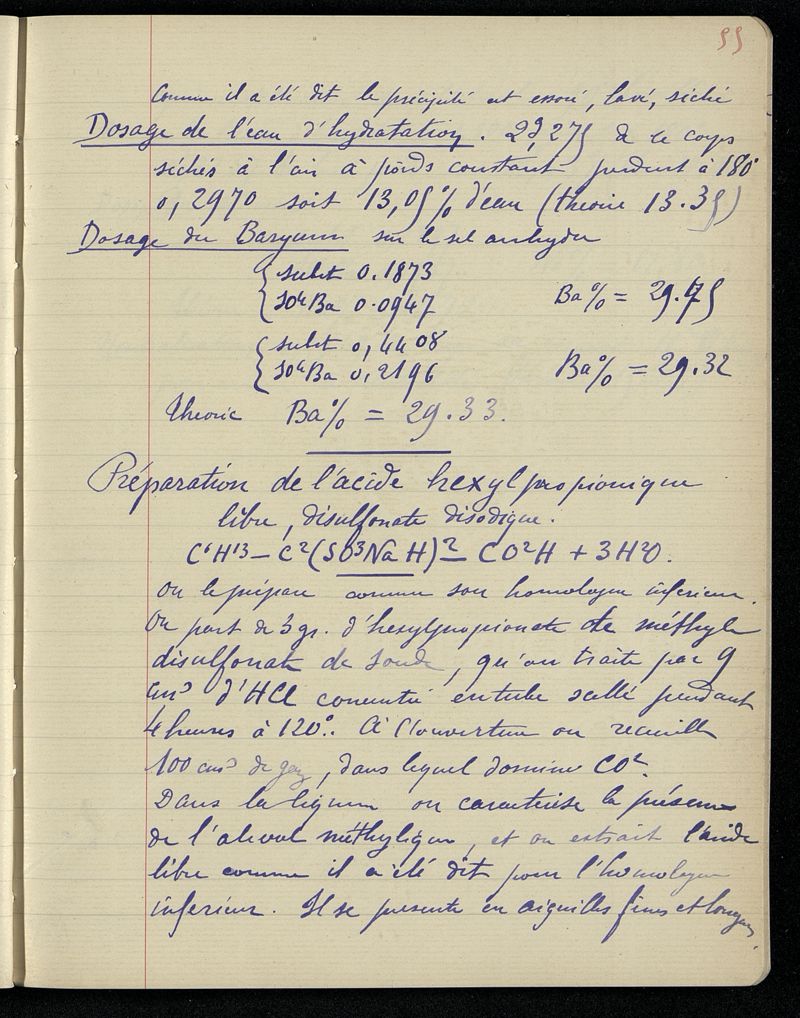 55
Comme il a été dit le précipité est essoré, lavé, séché
Dosage de l'eau d'hydratation. de ce corps
séchés à l'air à poids constant perdent à 180°
0,2970 soit 13,05% d'eau (théorie 13.35)
Dosage du Baryum sur le sel anhydre
subst 0.1873
SO4Ba 0.0947 Ba% = 29.75
subst 0,4408
SO4Ba 0,2196 Ba% = 29.32
Théorie Ba% = 29.33.
Préparation de l'acide hexylpropionique
libre, disulfonate disodique.
C6H13 – C2(SO3Na H)2 – CO2H + 3H2O.
On le prépare comme son homologue inférieur.
On part de 3 gr. d'hexylpropionate de méthyle
disulfonate de soude, qu'on traite par 9
cm3 d'HCl concentré en tube scellé pendant
4 heures à 120°. A l'ouverture on recueille
100 cm3 de gaz, dans lequel domine CO2.
Dans la liqueur on caractérise la présence
de l'alcool méthylique, et on extrait l'acide
libre comme il a été dit pour l'homologue
inférieur. Il se présente en aiguilles fines et longues,